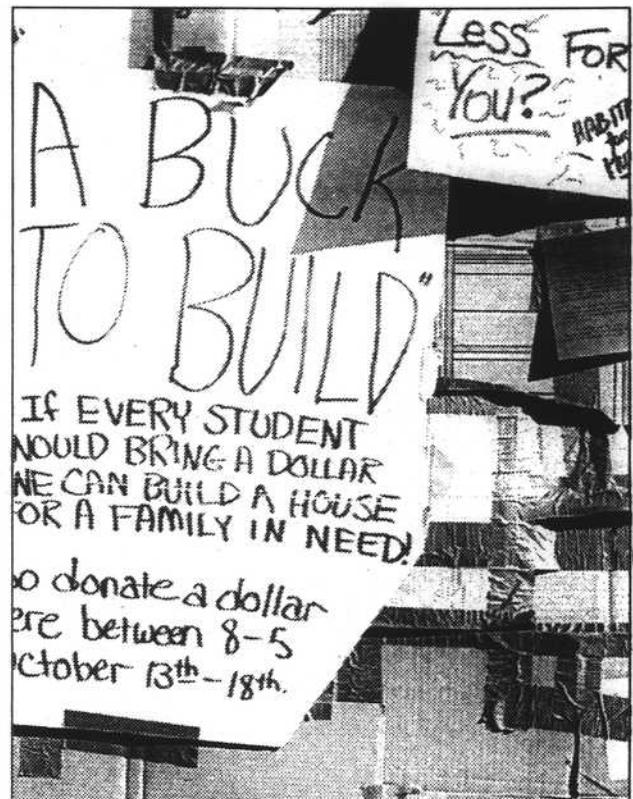 A BUCK
TO BUILD"
If EVERY STUDENT
WOULD BRING A DOLLAR
WE CAN BUILD A HOUSE
FOR A FAMILY IN NEED!
So donate a dollar
ere between 8-5
October 13th-18th.
Less FOR
You?
HABIT
for